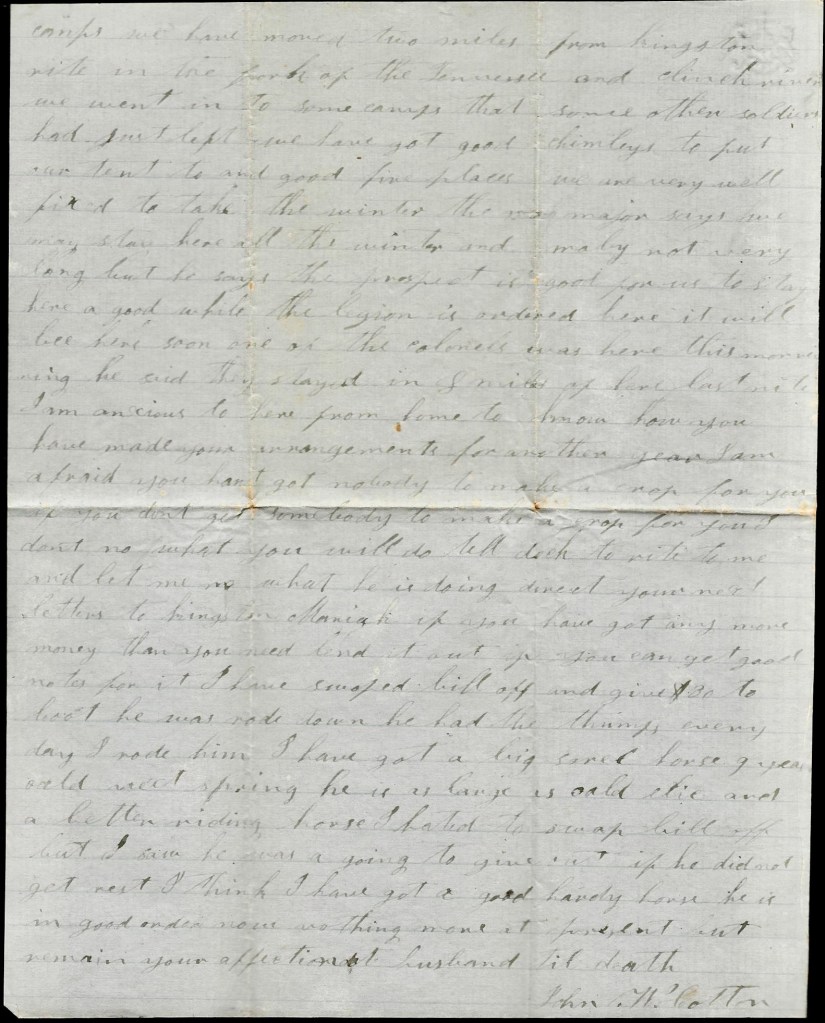 camps we have moved two miles from kingston
rite in the fork of the tennessee and clinch river
we went in to some camps that some other soldiers
had just left we have got good chimleys to put
our tent to and good fire places we are very well
fixd to take the winter the major says we
may stay here all the winter and maby not very
long but he says the prospect is good for us to stay
here a good while the legion is ordered here it will
bee here soon one of the colonels was here this morn
ning he said they stayed in 8 miles of here last nite
I am anscious to here from home to know how you
have made your arrangements for another year I am
afraid you hant got nobody to make a crop for you
if you dont get somebody to make a crop for you I
dont no what you will do tell dock to rite to me
and let me no what he is doing direct your next
letters to kingston Mariah if you have got any more
money than you need lend it out if you can get good
notes for it I have swaped bill off and give $30 to
boot he was rode down he had the thumps every
day I rode him I have got a big sorel horse 9 years
oald next spring he is as large is oald clic and
a better riding horse I hated to swap bill off
but I saw he was a going to give out if he did not
get rest I think I have got a good hardy horse he is
in good order now nothing more at present but
remain your affectionat husband til death
John W Cotton